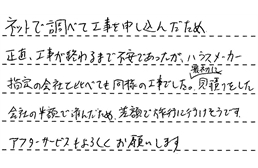 ネットで調べて工事を申し込んだため
正直、工事が終わるまで不安であったが、ハウスメーカー
指定の会社と比べても同様の工事でした。最初に見積りをした
会社の半額で済んだため、差額で旅行に行けそうです
アフターサービスもよろしくお願いします